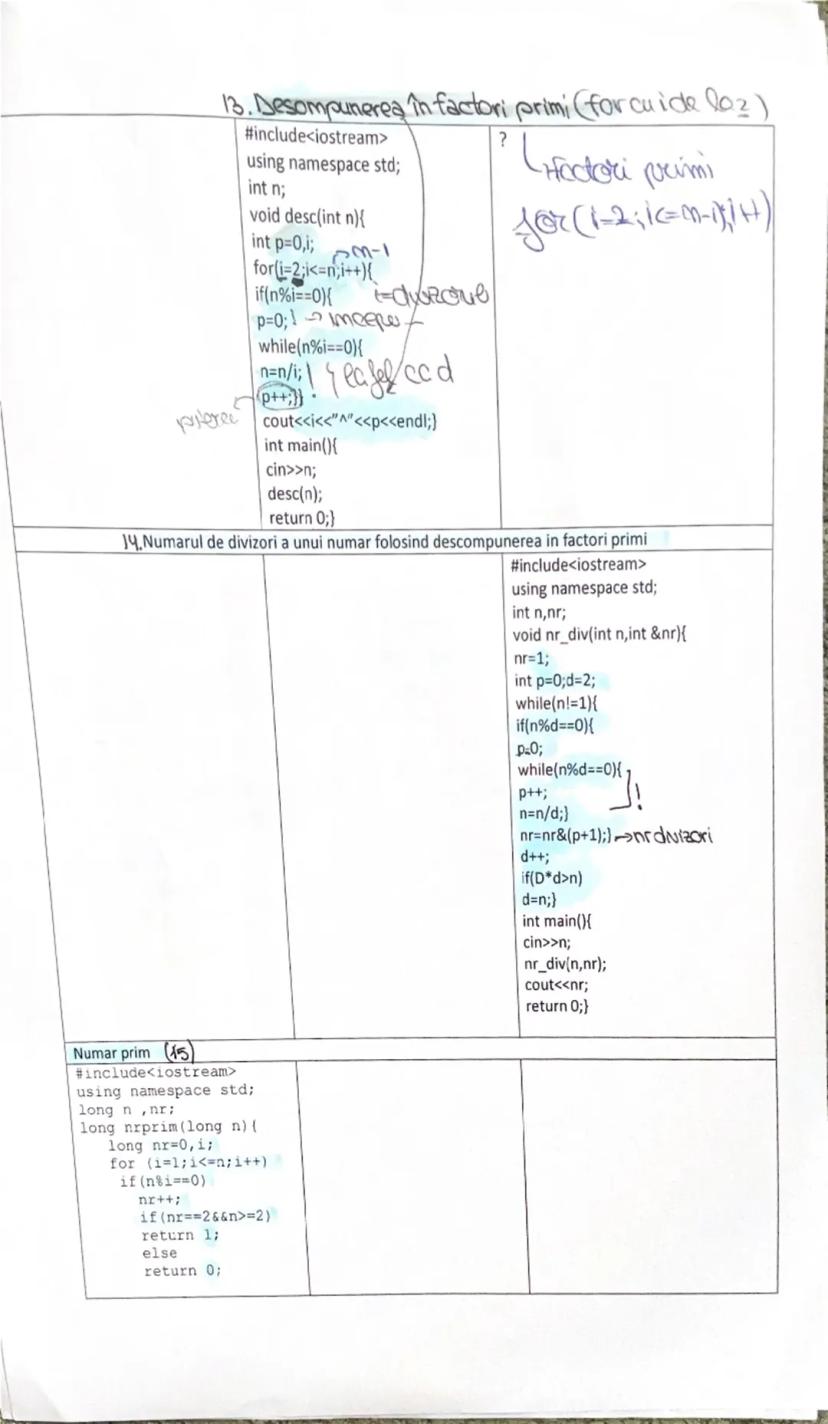 13. Desompunerea în factori primi (for cu i de la 2)
#include<iostream>
using namespace std;
int n;
void desc(int n){
int p=0,i;
n-1
for(i=2;i<=n;i++){
if(n%i==0){
p=0;! →
while(n%i==0){
n=n/i; !
p++;}}
cout<<i<<"^"<<p<<endl;}
int main(){
cin>>n;
desc(n);
return 0;}
?
factori primi
for(i=2;i<=n-1;i++)
14.Numarul de divizori a unui numar folosind descompunerea in factori primi
#include<iostream>
using namespace std;
int n,nr;
void nr_div(int n,int &nr){
nr=1;
int p=0;d=2;
while(n!=1){
if(n%d==0){
p=0;
while(n%d==0){
p++; !
n=n/d;}
nr=nr&(p+1);} →nr divizori
d++;
if(D*d>n)
d=n;}
int main(){
cin>>n;
nr_div(n,nr);
cout<<nr;
return 0;}
Numar prim (15)
#include<iostream>
using namespace std;
long n ,nr;
long nrprim(long n){
long nr=0,i;
for (i=1;i<=n;i++)
if(n%i==0)
nr++;
if(nr==2&&n>=2)
return 1;
else
return 0;